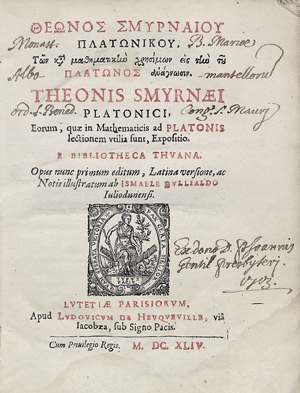 ΘΕΩΝΟΣ ΣΜΥΡΝΑΙΟΥ
Monast. ΠΛΑΤΩΝΙΚΟΥ, B. Mariae
Τῶν κỳ μαθηματικὴν χρησίμων εἰς τὴν τȣ͂
Albo ΠΛΑΤΩΝΟΣ ἀνάγνωσιν. mantelloru
THEONIS SMYRNÆI
ord. S. Bened. PLATONICI, Cong. S. Maurj
Eorum, quæ in Mathematicis ad PLATONIS
lectionem vtilia sunt, Expositio.
E BIBLIOTHECA THVANA.
Opus nunc primum editum, Latina versione, ac
Notis illustratum ab ISMAELE BVLLIALDO
Iuliodunensi.
Ex dono D. Joannis
Gentil Presbyterj
1703
LVTETIÆ PARISIORVM,
Apud LVDOVICVM DE HEVQVEVILLE, viâ
Iacobæa, sub Signo Pacis.
Cum Priuilegio Regis. M. DC. XLIV.